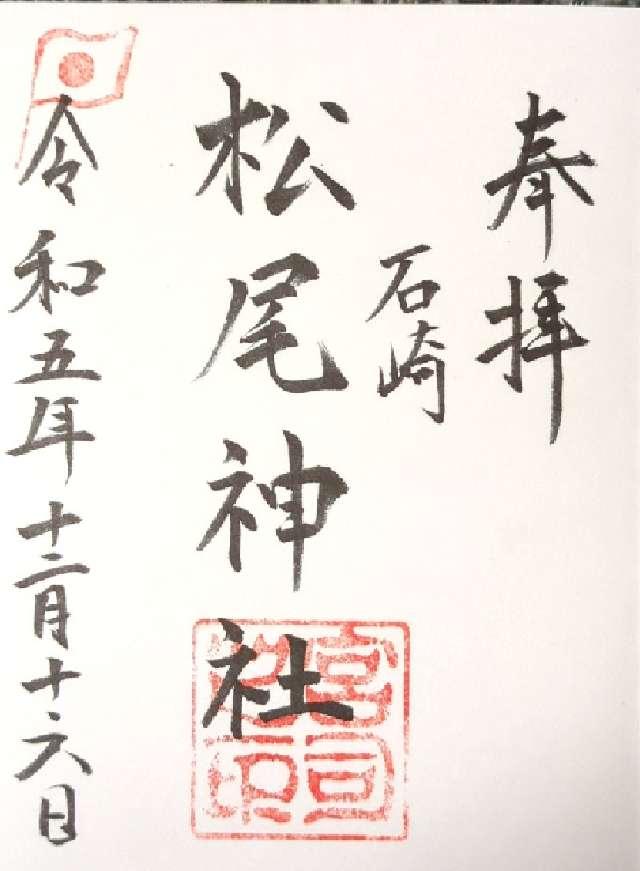 奉拝
石崎
松尾神社
宮司之印
令和五年十二月十六日